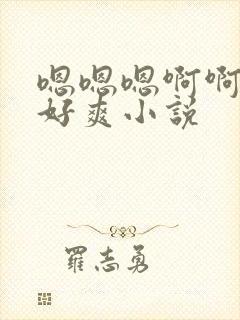 嗯嗯嗯啊啊
好爽小说
罗志勇